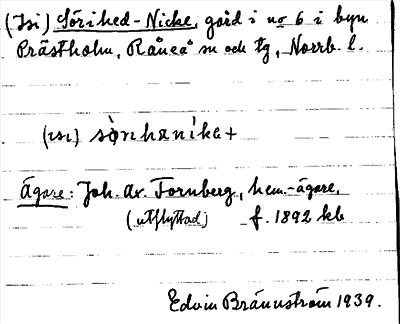 (Isi) Sörihed-Nicke, gård i no 6 i byn
Prästholm, Råneå sn och tg, Norrb. l.
(ısı)
Ägare: Joh. Av. Fornberg, hem.-ägare,
(utflyttad) f. 1892 kb
Edvin Brännström 1939.